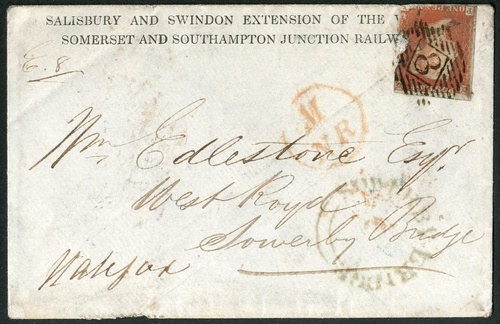 SALISBURY AND SWINDON EXTENSION OF THE W
SOMERSET AND SOUTHAMPTON JUNCTION RAILW
E. 8
8
M
NR
Wm Edlestone Esqr.
West Royd
Sowerby Bridge
Halifax